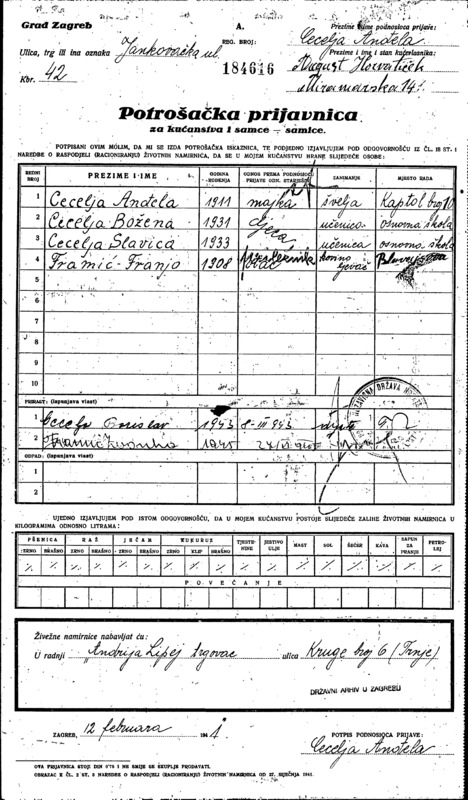 Grad Zagreb
A.
Prezime i ime podnosioca prijave:
Cecelja Anđela
Ulica, trg ili ina oznaka Jankovačka ul.
REG. BROJ:
184616
Prezime i ime i stan kućevlasnika:
August Horvatiček
Miramarska 141
Kbr. 42
Potrošačka prijavnica
za kućanstva i samce — samice.
POTPISANI OVIM MOLIM, DA MI SE IZDA POTROŠAČKA ISKAZNICA, TE PODJEDNO IZJAVLJUJEM POD ODGOVORNOŠĆU IZ ČL. 18 ST. 1
NAREDBE O RASPODJELI (RACIONIRANJU) ŽIVOTNIH NAMIRNICA, DA SE U MOJEM KUĆANSTVU HRANE SLIJEDEĆE OSOBE:
REDNI BROJ PREZIME I IME GODINA ROĐENJA ODNOS PREMA PODNOSIOCU PRIJAVE ODN. STARJEŠINI ZANIMANJE MJESTO RADA
1 Cecelja Anđela 1911 majka švelja Kaptol broj 10
2 Cecelja Božena 1931 djeca učenica osnovna škola
3 Cecelja Slavica 1933 učenica osnovna škola
4 Framić-Franjo 1908
5
6
7
8
9
10
PRIRAST: (ispunjava vlast)
1 1943 8-III 943
2 1945
OTPAD: (ispunjava vlast)
1
2
UJEDNO IZJAVLJUJEM POD ISTOM ODGOVORNOŠĆU, DA U MOJEM KUĆANSTVU POSTOJE SLIJEDEĆE ZALIHE ŽIVOTNIH NAMIRNICA U
KILOGRAMIMA ODNOSNO LITRAMA:
PŠENICA RAŽ JEČAM KUKURUZ TJESTENINE JESTIVO ULJE MAST SOL ŠEĆER KAVA SAPUN ZA PRANJE PETROLEJ
ZRNO BRAŠNO ZRNO BRAŠNO ZRNO BRAŠNO ZRNO KLIP BRAŠNO
POVEĆANJE
Živežne namirnice nabavljat ću:
U radnji Andrija Lipej trgovac ulica Kruge broj 6 (Trnje)
DRŽAVNI ARHIV U ZAGREBU
ZAGREB, 12 februara 1941.
POTPIS PODNOSIOCA PRIJAVE:
Cecelja Anđela
OVA PRIJAVNICA STOJI DIN 0'75 I NE SMIJE SE SKUPLJE PRODAVATI.
OBRAZAC K ČL. 2 ST. 3 NAREDBE O RASPODJELI (RACIONIRANJU) ŽIVOTNIH NAMIRNICA OD 27. SIJEČNJA 1941.